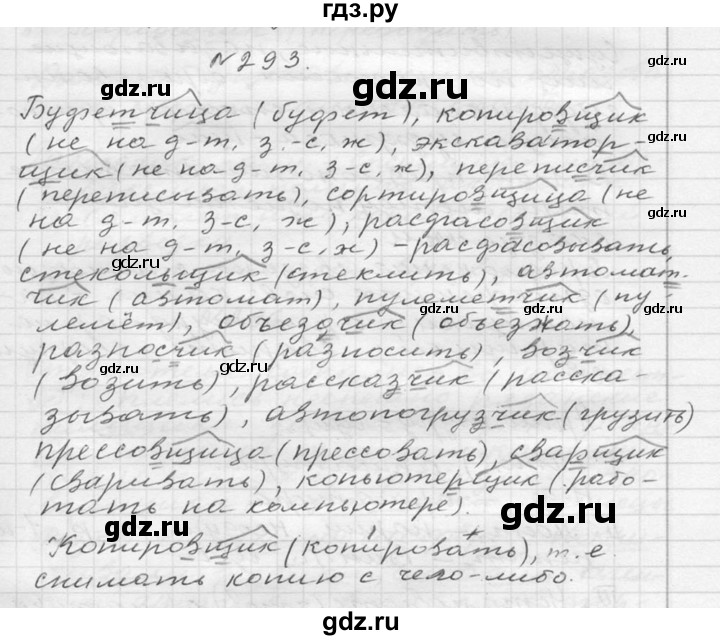 гдз.ру
№293.
gdz.ru gdz.ru
Буфетчица (буфет), копировщик
(не на д-т, з.-с, ж), экскаватор-
gdz.ru
щик (не на д-т, з-с, ж), переписчик
(переписывать), сортировщица (не
gdz.ru
на д-т, з-с, ж), расфасовщик
(не на д-т, з-с, ж) - расфасовывать,
gdz.ru
стекольщик (стеклить), автомат-
чик (автомат), пулеметчик (пу
gdz.ru
лемёт), объездчик (объезжать),
разносчик (разносить), возчик
gdz.ru
(возить), рассказчик (расска-
зывать), автопогрузчик (грузить)
gdz.ru
прессовщица (прессовать), сварщик
(сваривать), копьютерщик (рабо-
тать на компьютере).
gdz.ru gdz.ru
Копировщик (копировать), т.е.
снимать копию с чего-либо.
gdz.ru